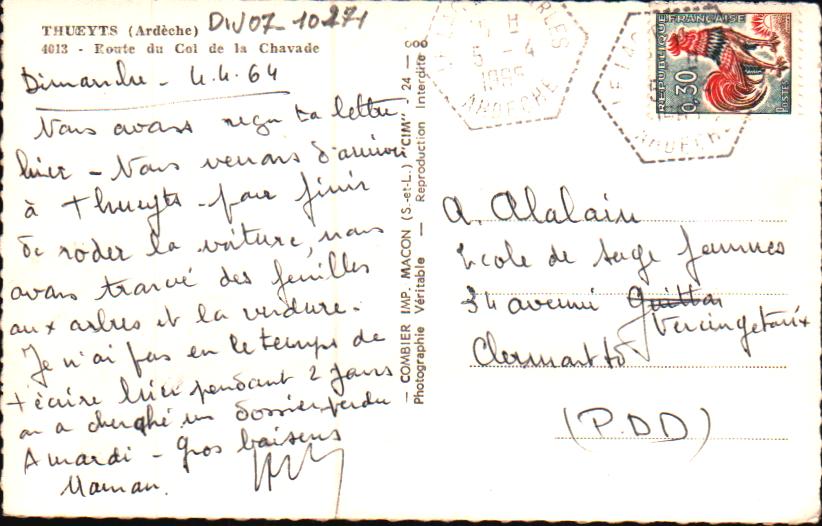 DIV07-10271
THUEYTS (Ardèche)
4013 - Route du Col de la Chavade
Dimanche - 4.4.64
Nous avons reçu ta lettre
hier - Nous venons d'arriver
à Thueyts - pour finir
de roder la voiture, nous
avons trouvé des feuilles
aux arbres et la verdure.
Je n'ai pas eu le temps de
t'écrire hier pendant 2 jours
on a cherché un dossier perdu
A mardi - Gros baisers
Maman.
COMBIER IMP. MACON (S.-et-L.) "CIM" 24
Photographie Véritable - Reproduction Interdite
5 - 4
ARDECHE
REPUBLIQUE FRANÇAISE
0,30
POSTES
A. Alalain
Ecole de sage femmes
34 avenue Guillon
Vercingetorix
Clermont fd
(P.D.D)